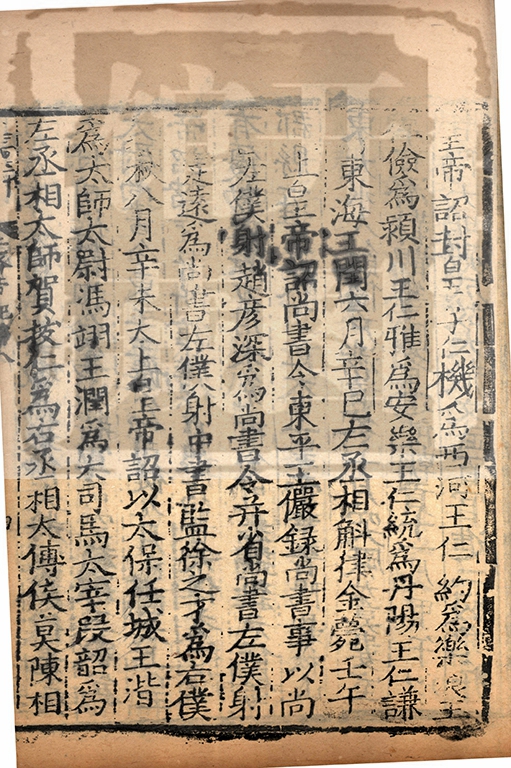 皇帝詔封皇子仁機為西河王仁約為樂浪王
仁儉為潁川王仁雅為安樂王仁統為丹陽王仁謙
為東海王閏六月辛巳左丞相斛律金薨壬午
太上皇帝詔尚書令東平王儼錄尚書事以尚
書左僕射趙彥深為尚書令并省尚書左僕射
婁定遠為尚書左僕射中書監徐之才為右僕
射秋八月辛未太上皇帝詔以太保任城王湝
為太師太尉馮翊王潤為大司馬太宰段韶為
左丞相太師賀拔仁為右丞相太傅侯莫陳相